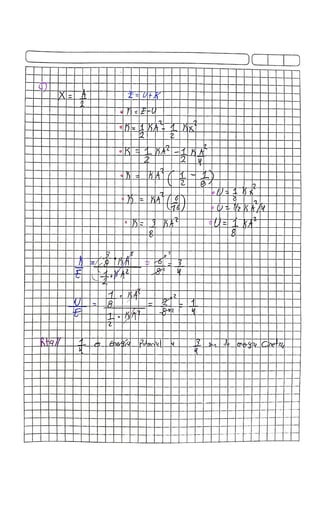 c)
X = A/2
E = U + K
• K = E - U
• K = 1/2 KA² - 1/2 Kx²
• K = 1/2 KA² - 1/2 K A²/4
• K = KA² ( 1/2 - 1/8 )
• K = KA² ( 6/16 )
• U = 1/2 Kx²
• U = 1/2 KA²/4
• K = 3/8 KA²
• U = 1/8 KA²
K/E = 3/8 • KA² / 1/2 • KA² = 6/8 = 3/4
U/E = 1/8 • KA² / 1/2 • KA² = 2/8 = 1/4
Rta// 1/4 es energía Potencial y 3/4 es la energía Cinética